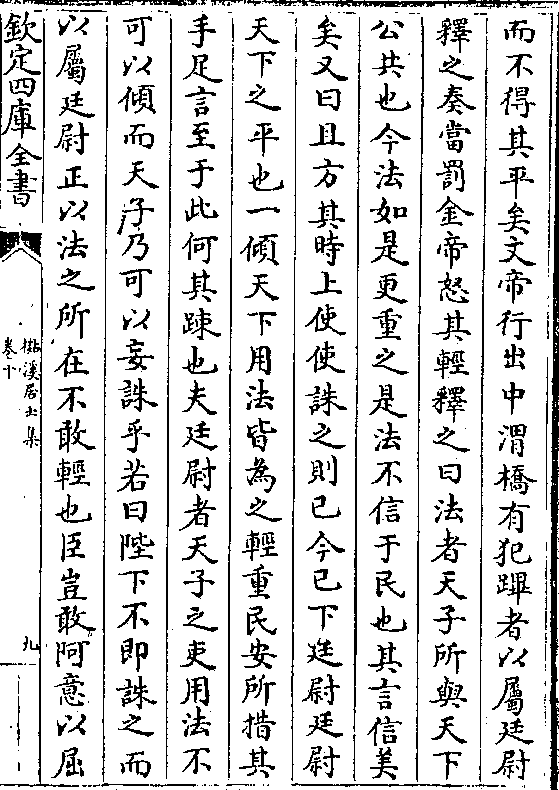 而不得其平矣文帝行出中渭橋有犯蹕者以屬廷尉
釋之奏當罰金帝怒其輕釋之曰法者天子所與天下
公共也今法如是更重之是法不信于民也其言信美
矣又曰且方其時上使使誅之則已今已下廷尉廷尉
天下之平也一傾天下用法皆為之輕重民安所措其
手足言至于此何其踈也夫廷尉者天子之吏用法不
可以傾而天子乃可以妄誅乎若曰陛下不即誅之而
以屬廷尉正以法之所在不敢輕也臣豈敢阿意以屈
欽定四庫全書
卷十
九